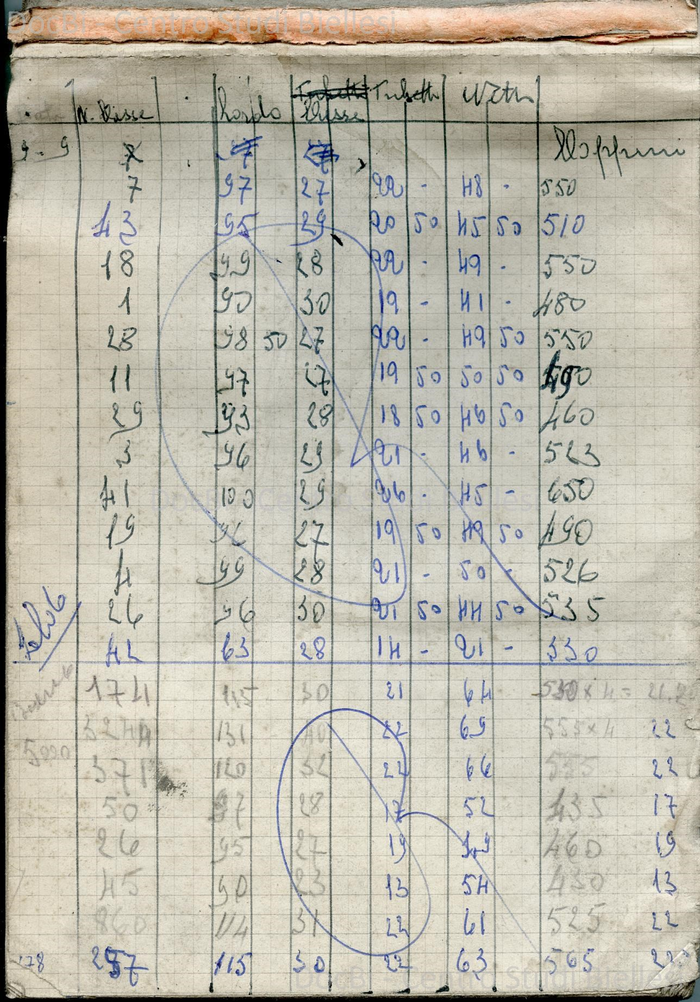 N. Kasse Lordo Kasse Tubetti Netto
9-9 Roppuni
7 97 27 22 - 48 - 550
43 95 29 20 50 45 50 510
18 99 - 28 22 - 49 - 550
1 90 30 19 - 41 - 480
28 98 50 27 22 - 49 50 550
11 97 27 19 50 50 50
29 93 28 18 50 46 50 460
3 96 29 21 - 46 - 523
41 100 29 26 - 45 - 650
19 96 27 19 50 49 50 490
4 99 28 21 - 50 - 526
26 96 30 21 50 44 50 535
42 63 28 14 - 21 - 330
174 115 30 21 64 530 x 4 =
131 40 22 69 555 x 4 22
371 120 32 22 66 555 22
5000
50 97 28 17 52 435 17
26 95 27 19 49 460 19
45 90 23 13 54 430 13
860 114 31 22 61 525 22
257 115 30 22 63 565 22